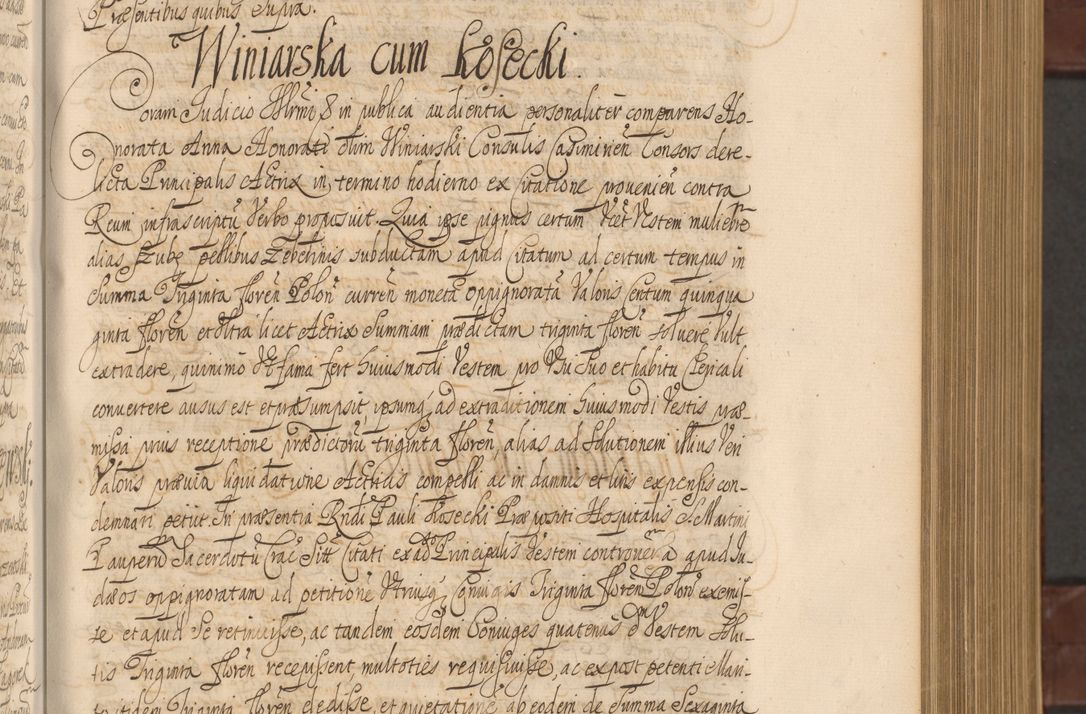 Præsentibus quibus supra.
Winiarska cum Kosecki.
Coram Judicio Illrmi & in publica audientia personaliter comparens Ho-
norata Anna Honorati olim Winiarski Consulis Casimirien Consors dere-
licta Principalis Actrix in termino hodierno ex citatione provenien contra
Reum infrascriptu Verbo proposuit. Quia ipse pignus certum vict Vestem muliebre
alias Szube pellibus Zebelinis subductam apud Citatum ad certum tempus in
Summa Triginta floren Polon curren moneta oppignorata Valoris Centum quinqua
ginta floren et Ultra licet Actrix Summam prædictam triginta floren solvere, vult
extradere, quinimo Ut fama fert huiusmodi Vestem pro Usu Suo et habitu Clericali
convertere ausus est et præsumpsit, ipsumq ad extraditionem huiusmodi Vestis præ-
missa prius receptione prædictoru triginta floren, alias ad solutionem illius Veri
Valoris prævia liquidatione Actricis compelli ac in damnis et litis expensis con-
demnari petiit. In præsentia Rndi Pauli Kosecki Præpositi Hospitalis S. Martini
Pauperu Sacerdotu Crac Citati ex ad Principalis Vestem controversa apud Ju-
dæos oppignoratam ad petitione Utriusq Coniugis Triginta floren Polon exemis-
se et apud se retinuisse, ac tandem eosdem Coniuges quatenus Vestem solu-
tis Triginta floren recepissent, multoties requisivisse, ac ex post petenti Mari-
to itidem Triginta floren dedisse, et quietatione ab eodem de Summa Sexaginta